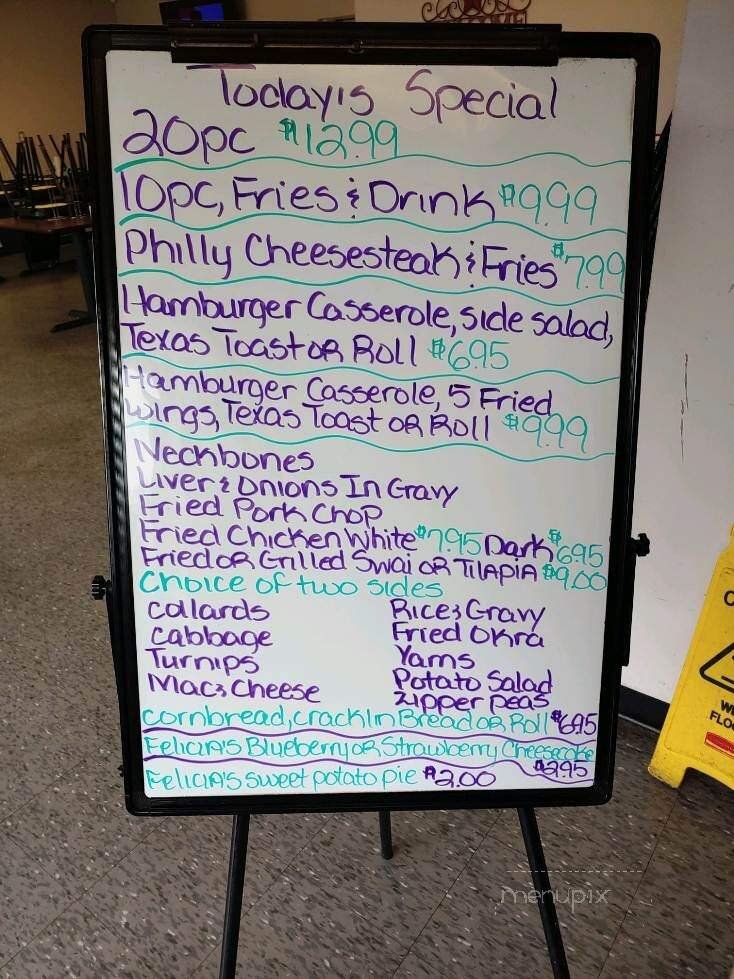 Today's Special
20pc $12.99
10pc, Fries & Drink $9.99
Philly Cheesesteak & Fries $7.99
Hamburger Casserole, side salad,
Texas Toast or Roll $6.95
Hamburger Casserole, 5 Fried
wings, Texas Toast or Roll $9.99
Neckbones
Liver & Onions In Gravy
Fried Pork Chop
Fried Chicken White $7.95 Dark $6.95
Fried or Grilled Swai or Tilapia $9.00
Choice of two sides
collards Rice & Gravy
cabbage Fried Okra
Turnips Yams
Mac & Cheese Potato Salad
Zipper peas
cornbread, cracklin Bread or Roll $6.95
Felicia's Blueberry or Strawberry Cheesecake
$2.95
Felicia's sweet potato pie $2.00
menupix